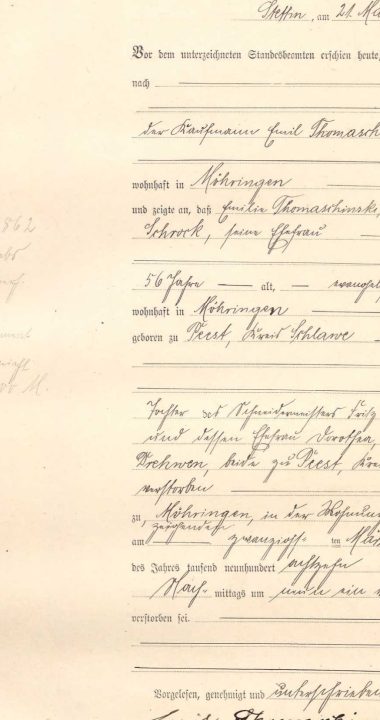 Stettin, am 21. Mä
Vor dem unterzeichneten Standesbeamten erschien heute,
nach
der Kaufmann Emil Thomasch
wohnhaft in Möhringen
und zeigte an, daß Emilie Thomaschinske
Schrock, seine Ehefrau
56 Jahre alt, evangel
wohnhaft in Möhringen
geboren zu Peest, Kreis Schlawe
862
Tochter des Schneidermeisters Fritz
und dessen Ehefrau Dorothea,
Drehwen, beide zu Peest, Krei
verstorben
zu Möhringen, in der Wohnun
am zwanzigs ten Mä
des Jahres tausend neunhundert achtzehn
Nach mittags um neun ein
verstorben sei.
Vorgelesen, genehmigt und unterschrieben